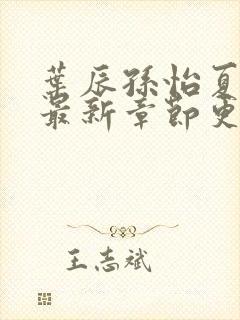 叶辰孙怡夏
最新章节更
王志斌